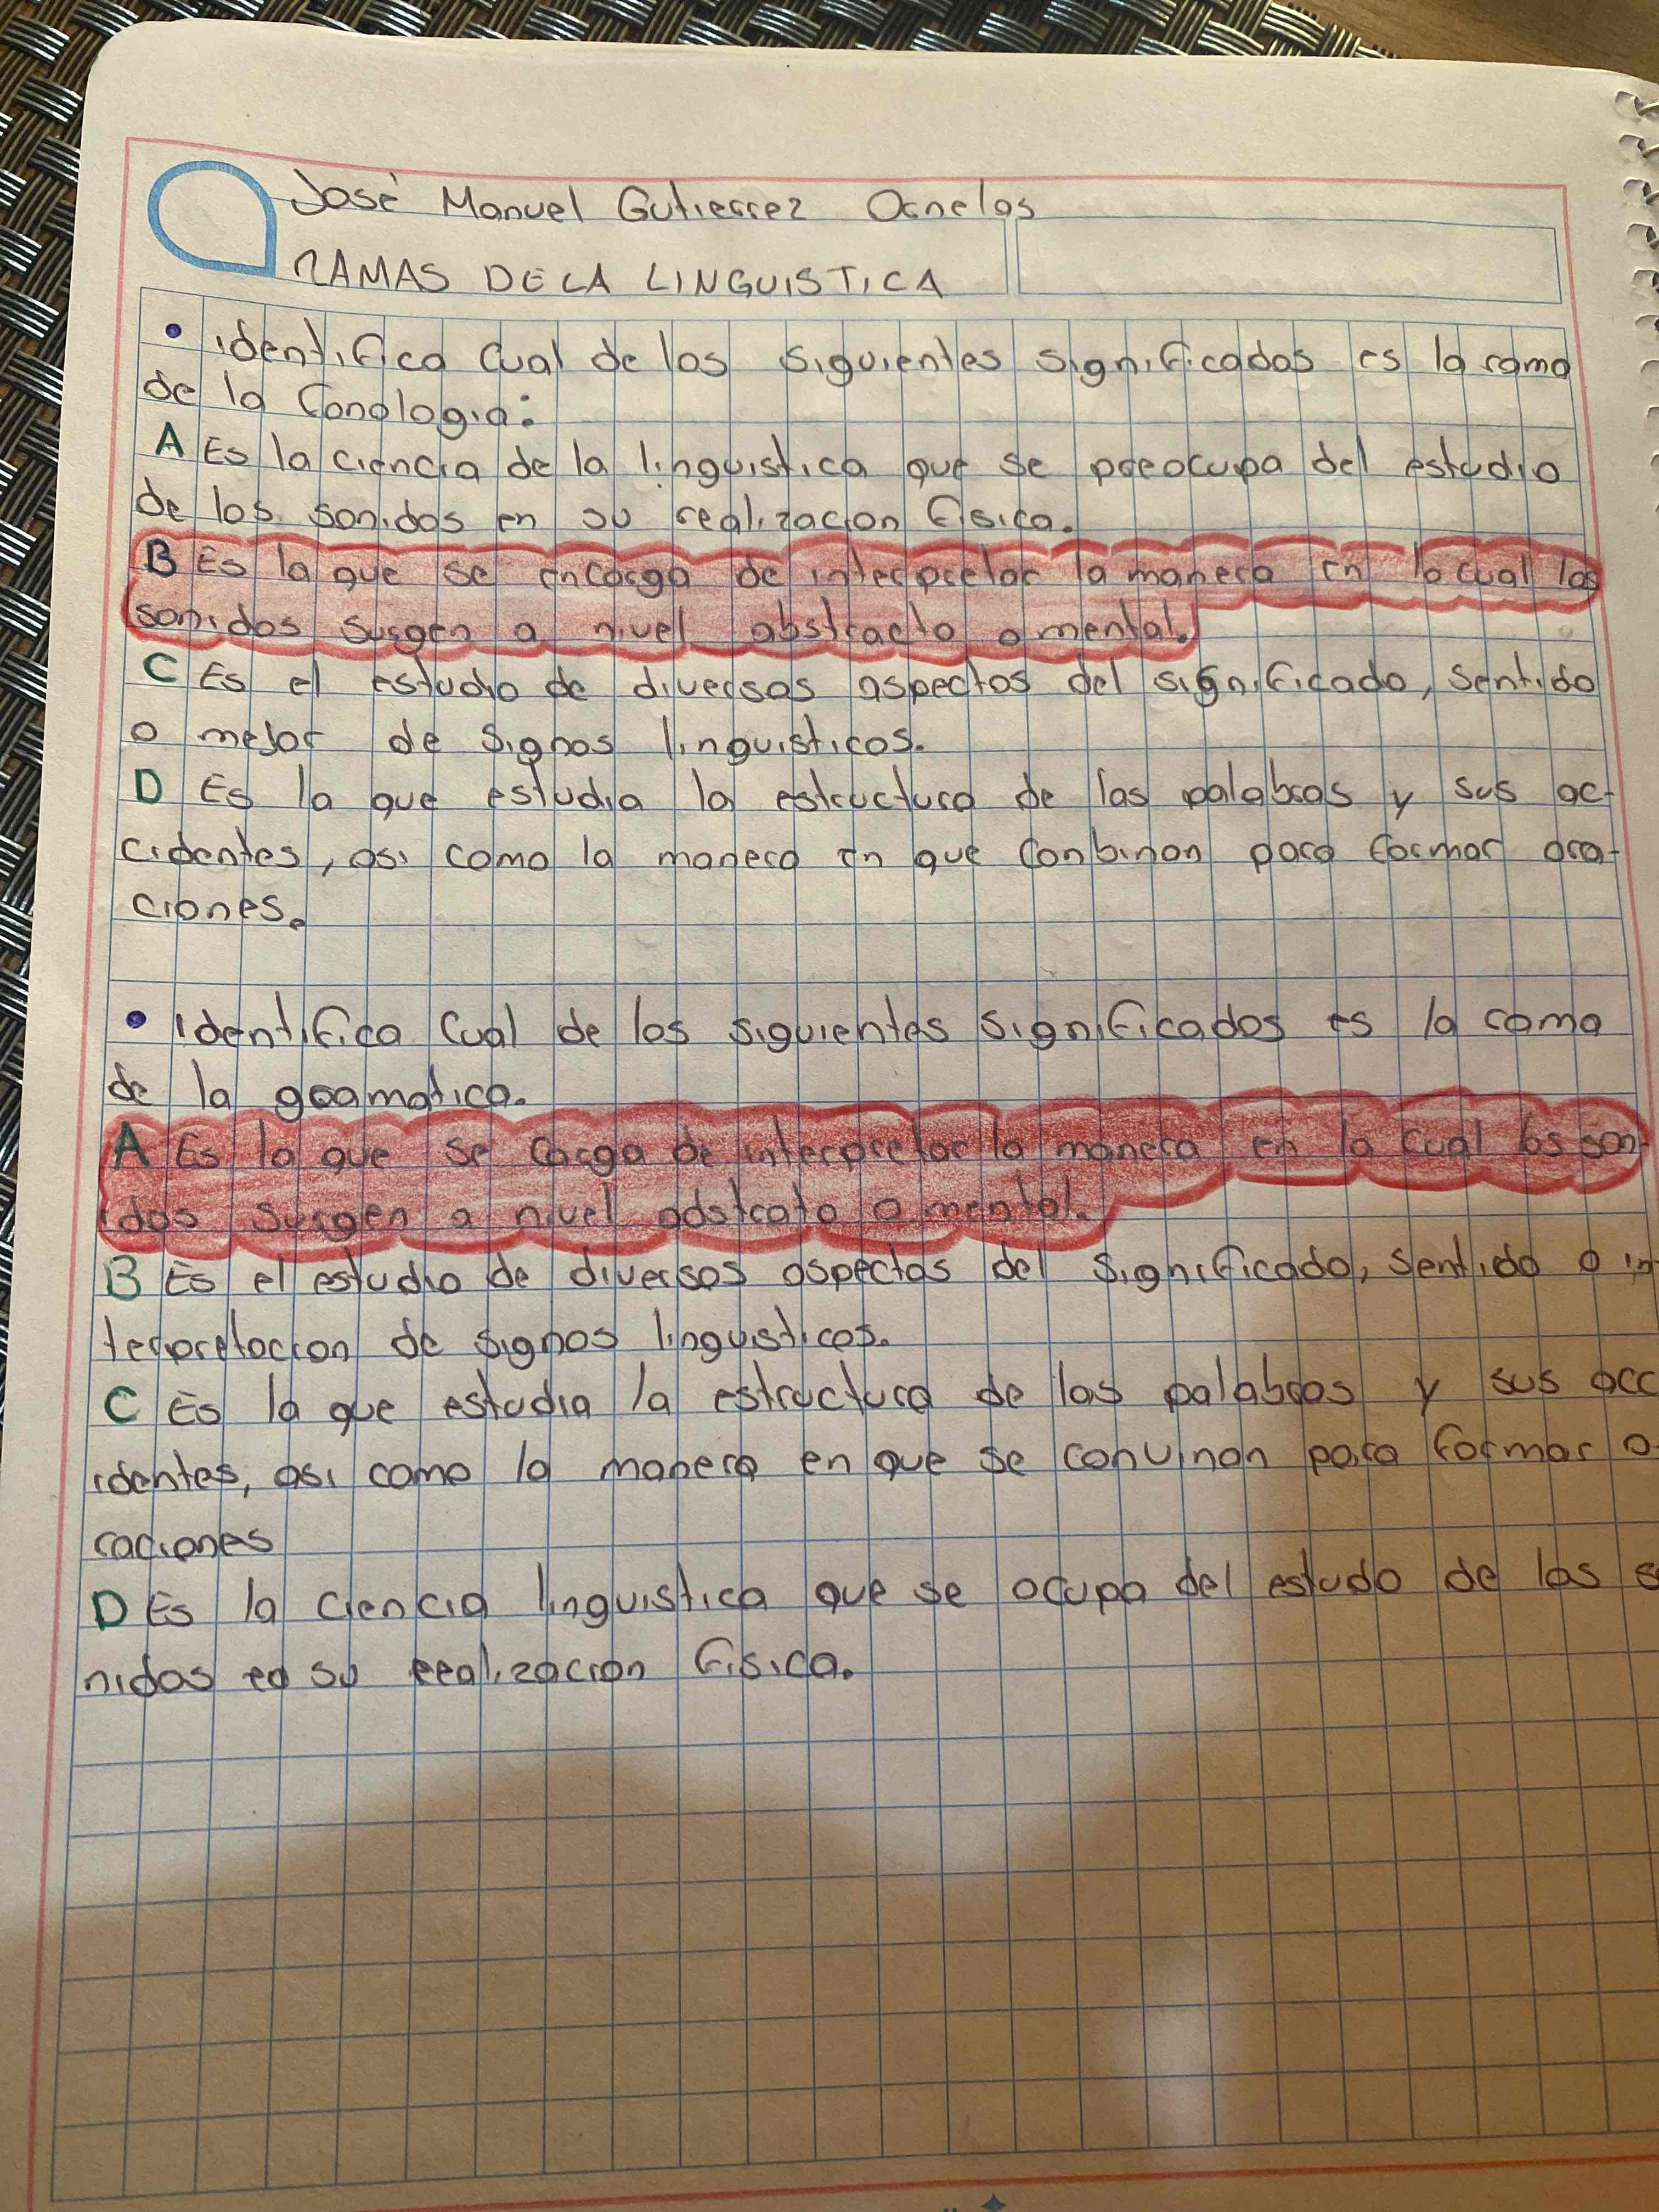 José Manuel Gutierrez Ornelas
RAMAS DE LA LINGUISTICA
• identifica cual de los siguientes significados es la rama
de la fonologia:
A Es la ciencia de la linguistica que se preocupa del estudio
de los sonidos en su realizacion fisica.
B Es la que se encarga de interpretar la manera en la cual los
sonidos surgen a nivel abstracto o mental.
C Es el estudio de diversos aspectos del significado, sentido
o mejor de signos linguisticos.
D Es la que estudia la estructura de las palabras y sus ac-
cidentes, asi como la manera en que conbinan para formar ora-
ciones.
• identifica cual de los siguientes significados es la rama
de la gramatica.
A Es la que se carga de interpretar la manera en la cual los son-
idos surgen a nivel adstrato o mental.
B Es el estudio de diversos aspectos del significado, sentido o in-
terpretacion de signos linguisticos.
C Es la que estudia la estructura de las palabras y sus acc
identes, asi como la manera en que se convinan para formar o-
raciones
D Es la ciencia linguistica que se ocupa del estudo de los s
nidos en su realizacion fisica.